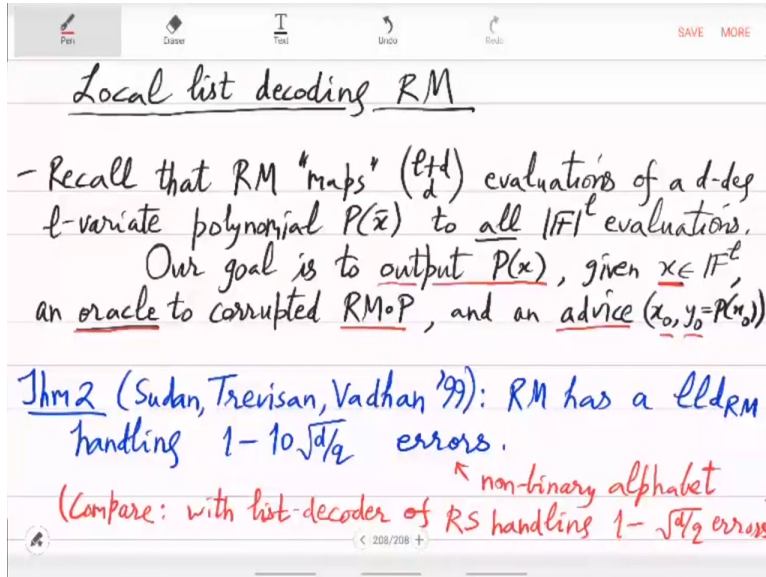 Pen Eraser Text Undo Redo SAVE MORE
Local list decoding RM
- Recall that RM "maps" (ℓ+d d) evaluations of a d-deg
ℓ-variate polynomial P(x̄) to all |F|^ℓ evaluations.
Our goal is to output P(x), given x∈ F^ℓ,
an oracle to corrupted RM∘P, and an advice (x₀, y₀=P(x₀))
Thm2 (Sudan, Trevisan, Vadhan '99): RM has a lld_RM
handling 1-10√d/q errors.
↖ non-binary alphabet
(Compare: with list-decoder of RS handling 1-√d/q errors
< 208/208 +